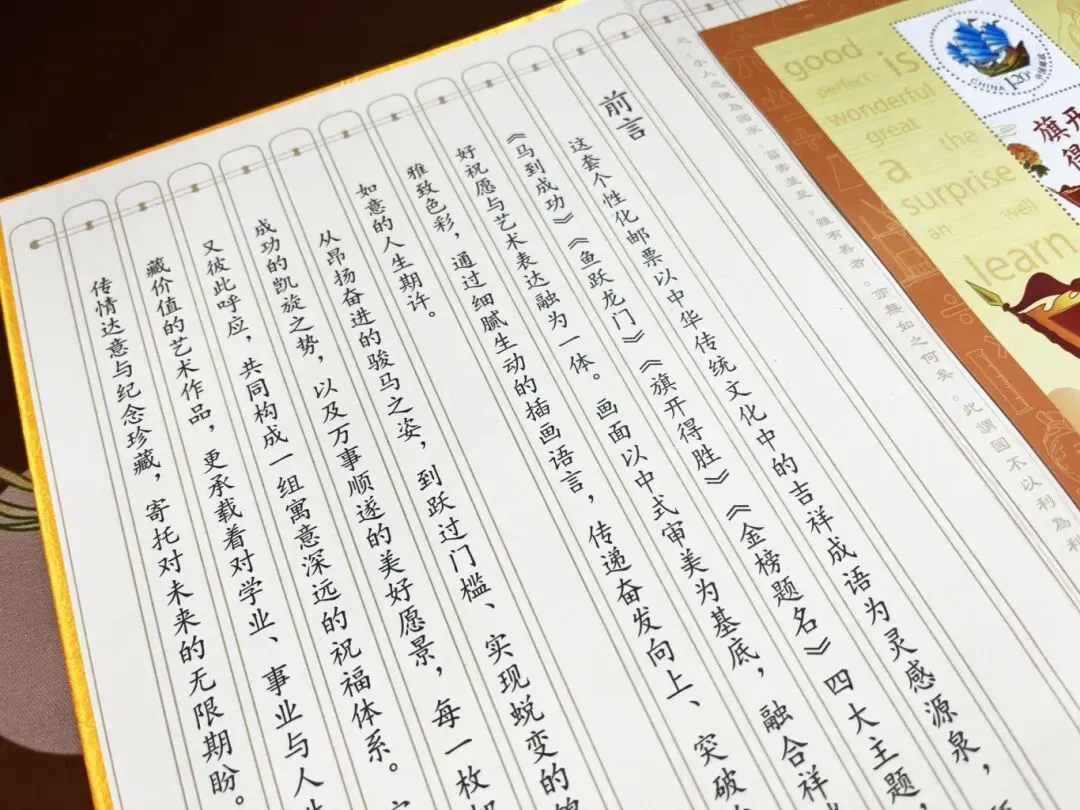 前言
这套个性化邮票以中华传统文化中的吉祥成语为灵感源泉，
《马到成功》《鱼跃龙门》《旗开得胜》《金榜题名》四大主题，
好祝愿与艺术表达融为一体。画面以中式审美为基底，融合祥
雅致色彩，通过细腻生动的插画语言，传递奋发向上、突破
如意的人生期许。
从昂扬奋进的骏马之姿，到跃过门槛、实现蜕变的
成功的凯旋之势，以及万事顺遂的美好愿景，每一枚
又彼此呼应，共同构成一组寓意深远的祝福体系。
藏价值的艺术作品，更承载着对学业、事业与人
传情达意与纪念珍藏，寄托对未来的无限期盼。
小人之使為國家，菑害並至。雖有善者，亦無如之何矣。此謂國不以利為利
good
is
perfect
wonderful
great
the
a
surprise
an
well
learn
CHINA 1.20 中国邮政
旗开
得